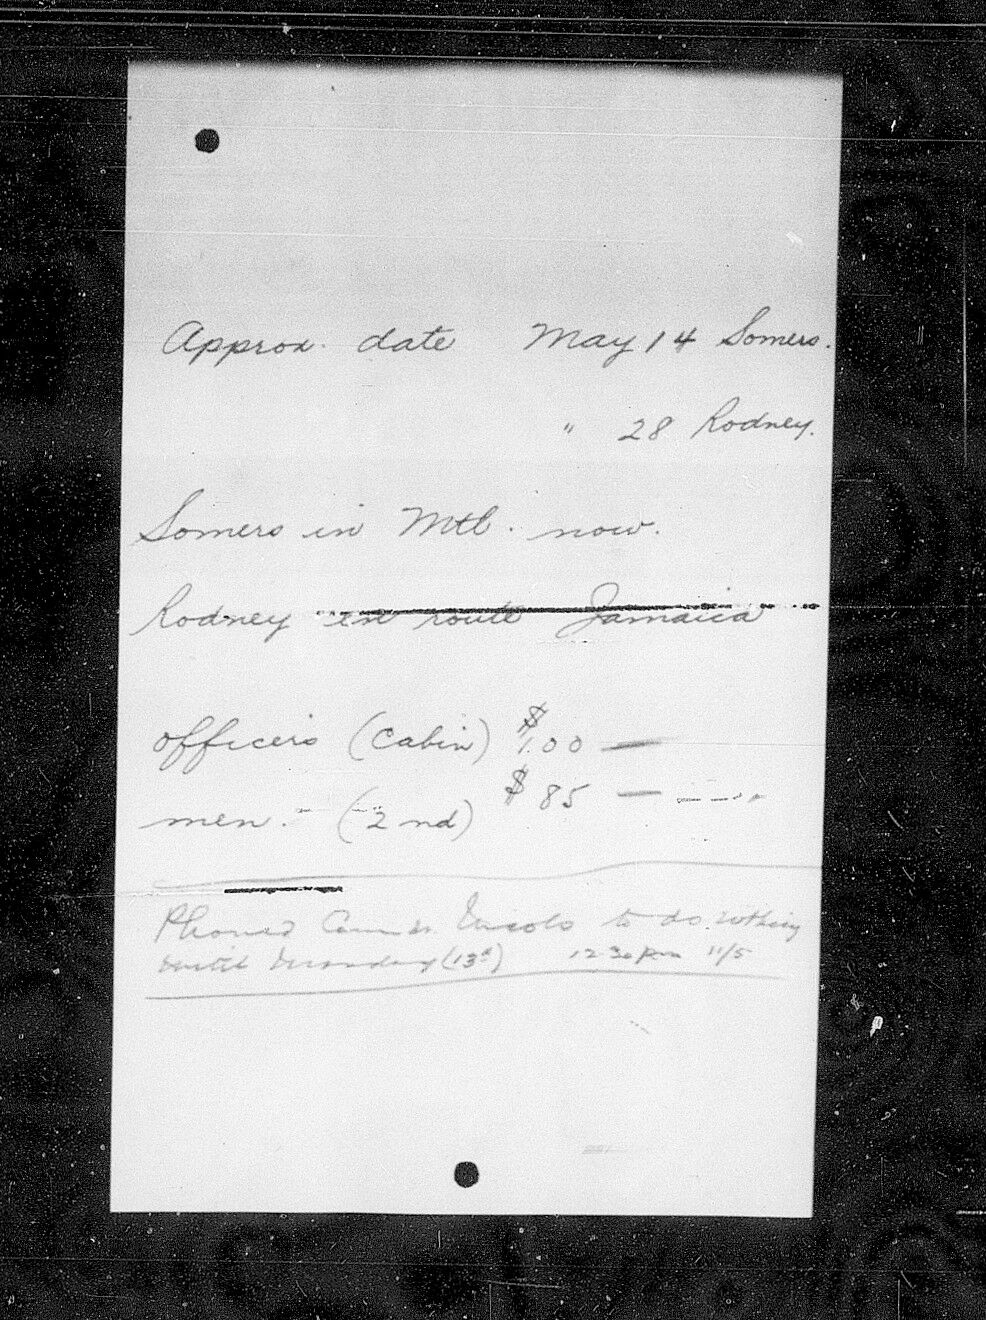 Approx. date May 14 Somers.
" 28 Rodney.
Somers in Mtl. now.
Rodney en route Jamaica
officers (Cabin) $100 —
men. - (2nd) $85 —
Phoned to do nothing
until Monday (13th) 12 30 pm 11/5